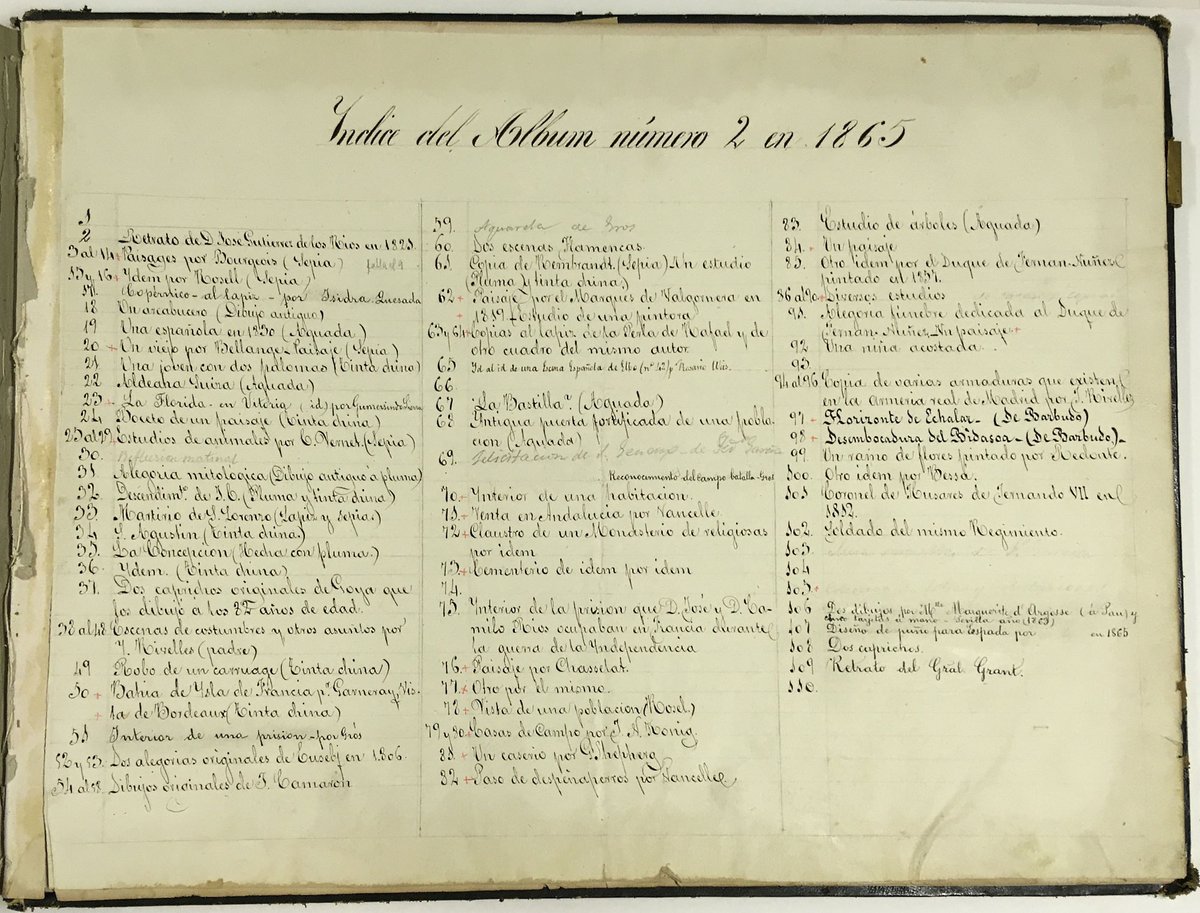 Yndice del Album número 2 en 1865
1
2 Retrato de D. Jose Gutierrez de los Rios en 1825.
3 al 14 + Paisages por Bourgeois (Sepia) falta el 9
15 y 16 + Ydem por Mosell (Sepia)
17 Copérnico - al lapiz - por Isidra Quesada
18 Un arcabucero (Dibujo antiguo)
19 Una española en 1830 (Aguada)
20 + Un viejo por Bellange - Paisaje (Sepia)
21 Una joven con dos palomas (Tinta china)
22 Aldeana Suiza (Aguada)
23 + La Florida en Vitoria (id) por Gumersindo
24 Boceto de un paisaje (Tinta china)
25 al 29 + Estudios de animales por C. Vernet. (Sepia)
30. matinal
31 Alegoria mitológica (Dibujo antiguo à pluma)
32 Desendimto. de J.C. (Pluma y tinta china)
33 Martirio de S. Lorenzo (Lapiz y sepia)
34 S. Agustin (Tinta china)
35. La Concepcion (Hecha con pluma.)
36. Ydem. (Tinta china)
37 Dos caprichos originales de Goya que
los dibujó à los 22 años de edad.
38 al 48 Escenas de costumbres y otros asuntos por
J. Rivelles (padre)
49 Robo de un carruage (Tinta china)
50 + Bahia de Ysla de Francia pr. Garneray y Vis-
+ ta de Bordeaux (Tinta china)
51 Interior de una prision - por Gros
52 y 53. Dos alegorias originales de Eusebj en 1806.
54 al 58. Dibujos originales de J. Camarón
59. Aguarela de Gros
60. Dos escenas flamencas.
61. Copia de Rembrandt. (Sepia) Un estudio
(Pluma y tinta china.)
62 + Paisaje por el Marques de Valgornera en
1819 - Estudio de una pintora
63 y 64 + Copias al lapiz de la Perla de Rafael y de
otro cuadro del mismo autor.
65 Id al id de una Escena Española de Elbo (no. 42) pr Rosario
66.
67 "La Bastilla". (Aguada)
68 Antigua puerta fortificada de una pobla-
cion (Aguada)
69. Felicitacion de
Reconocimiento del campo batalla - Gros
70. + Ynterior de una habitacion.
71. + Venta en Andalucia por Vancelle.
72 + Claustro de un Monasterio de religiosas
por idem
73. + Cementerio de idem por idem
74.
75. Ynterior de la prision que D. José y D. Ca-
milo Rios ocupaban en Francia durante
la guerra de la Yndependencia
76. + Paisaje por Chasselat.
77. + Otro por el mismo.
78 + Vista de una poblacion (Mosel)
79 y 80 + Casas de Campo por J. N. Honig.
81. + Un caserio por G. Shepherg
82 + Paso de despeñaperros por Vancelle
83. Estudio de árboles (Aguada)
84. + Un paisaje
85. Otro idem por el Duque de Fernan-Nuñez
pintado en 1837.
86 al 90 + Diversos estudios
91. Alegoria fúnebre dedicada al Duque de
Fernan-Nuñez. Un paisaje. +
92 Una niña acostada.
93.
94 al 96. Copia de varias armaduras que existen
en la Armeria real de Madrid por J. Rivelles
97 + Horizonte de Echalar - (De Barbudo)
98 + Desembocadura del Bidasoa - (De Barbudo).-
99. Un ramo de flores pintado por Redonte.
100. Otro idem por Bessa.
101 Coronel de Husares de Fernando VII en
1832.
102. Soldado del mismo Regimiento.
103.
104
105. +
106 Dos dibujos por Mlle Marguerite d'Argosse (à Pau) y
cinco tarjetas a mano - Sevilla año (1783)
107 Diseño de puño para espada por en 1865
108 Dos caprichos.
109 Retrato del Gral. Grant.
110.